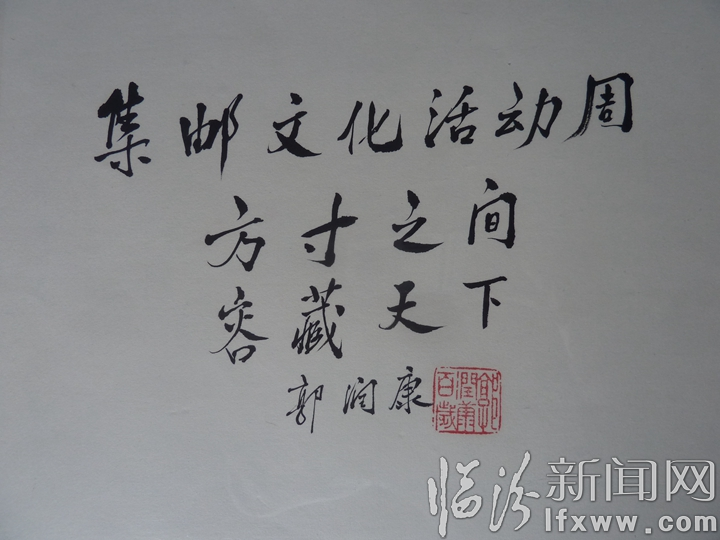 集邮文化活动周
方寸之间
容藏天下
郭润康
郭润康百歲
临汾新闻网
www.lfxww.com